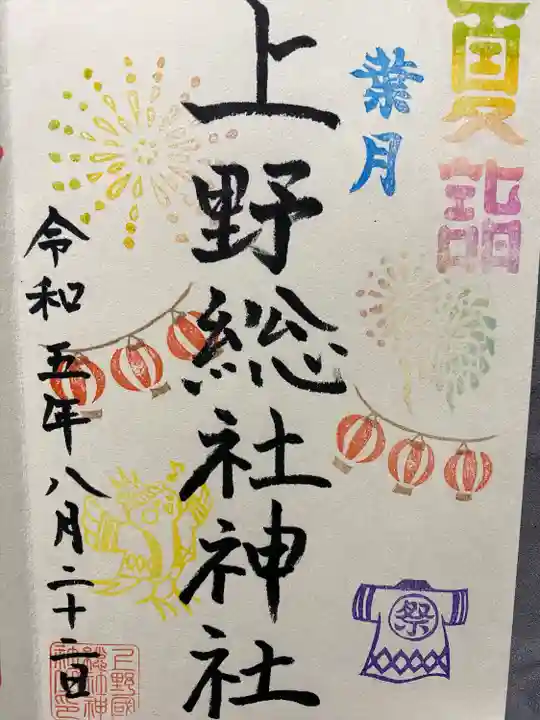 夏詣
葉月
上野総社神社
令和五年八月二十二日
祭
上野國
総社神
社之印